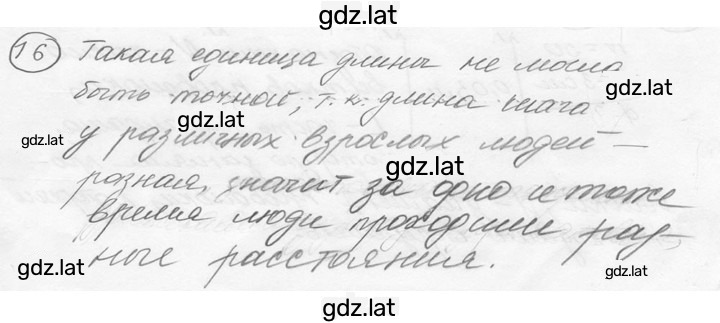 gdz.lat
16 Такая единица длины не могла
gdz.lat
быть точной, т.к. длина шага
gdz.lat
gdz.lat
у различных взрослых людей –
gdz.lat
разная, значит за одно и тоже
время люди проходили раз-
gdz.lat
ные расстояния.
gdz.lat
gdz.lat